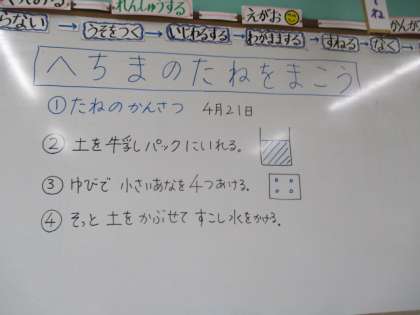 れんしゅうする
えがお
らない → うそをつく → いじわるする → わがままする → すねる → なく →
へちまのたねをまこう
① たねのかんさつ 4月21日
② 土を牛乳パックにいれる。
③ ゆびで 小さいあなを 4つあける。
④ そっと 土を かぶせて すこし水をかける。